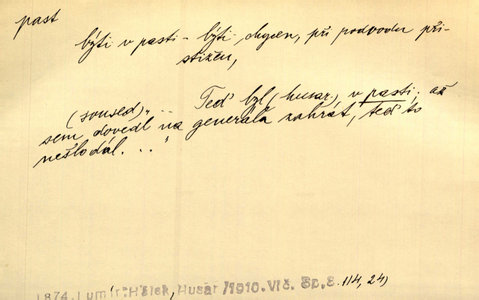 past
býti v pasti - býti chycen, při podvodu při-
stižen,
(soused)„.. Teď byl (husar) v pasti; až
sem dovedl na generála zahrát, teď to
nešlo dál. .."
1874. Lumír: Hálek, Husar /1910. Vlč. Sp. 8. 114, 24)